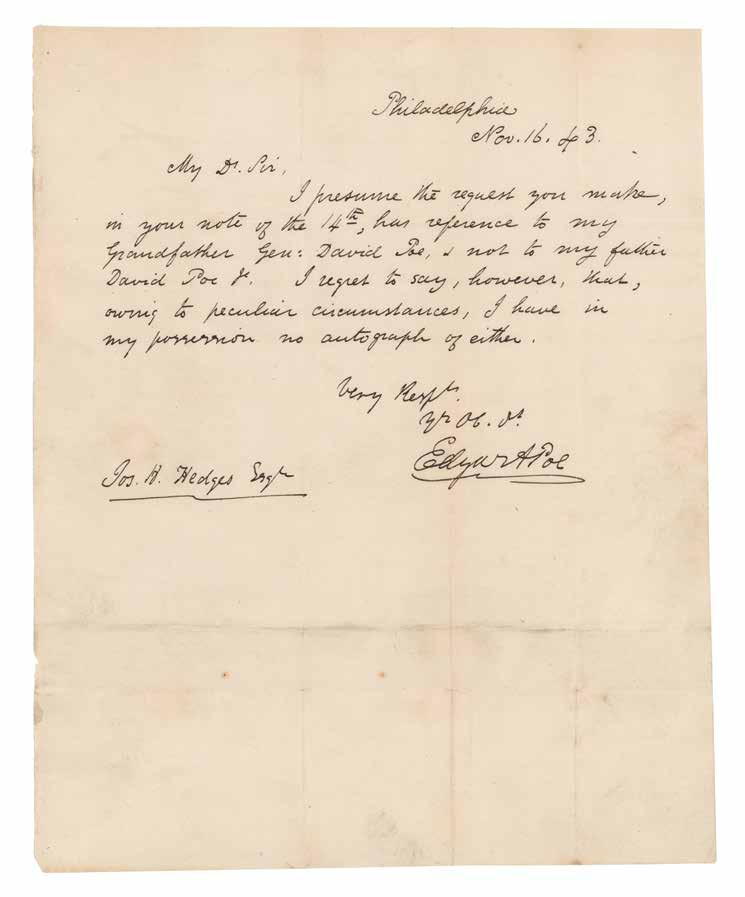 Philadelphia
Nov. 16. 43.
My Dr. Sir,
I presume the request you make,
in your note of the 14th, has reference to my
Grandfather Gen: David Poe, & not to my father
David Poe Jr. I regret to say, however, that,
owing to peculiar circumstances, I have in
my possession no autograph of either.
Very Respy.
Yr Ob. St.
Edgar A Poe
Jos. H. Hedges Esqr